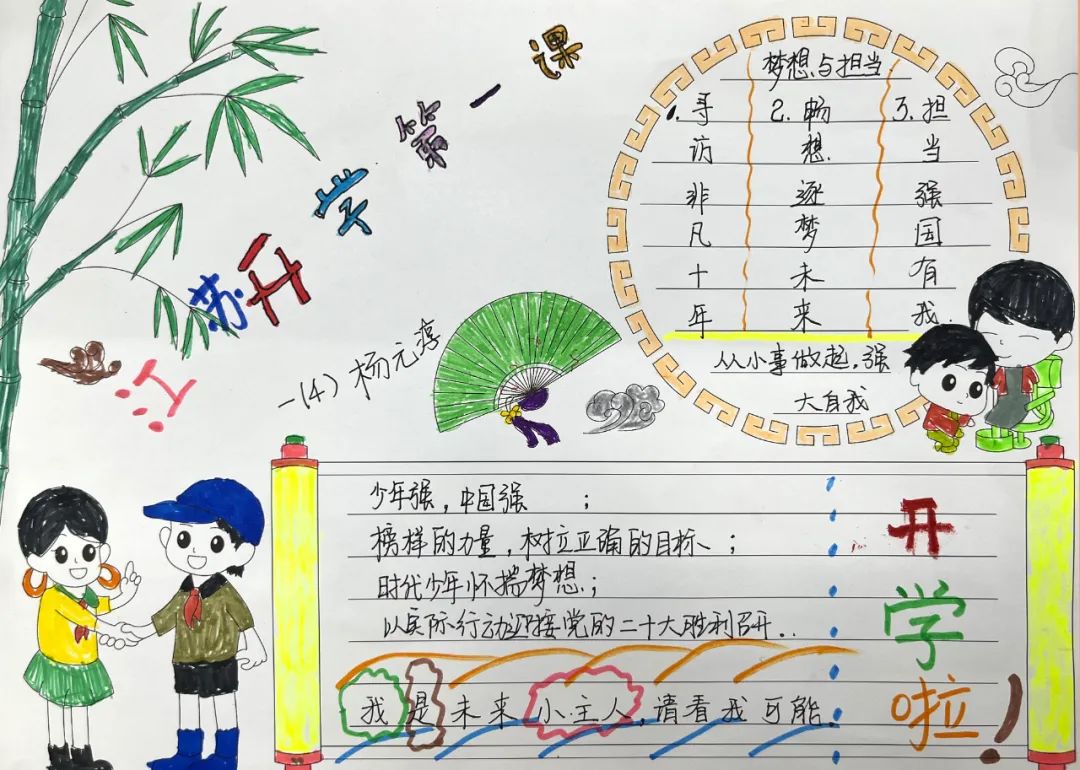 江苏开学第一课
一(4)杨元淳
梦想与担当
1.寻访非凡十年
2.畅想逐梦未来
3.担当强国有我.
从小事做起,强
大自我
少年强,中国强 ;
榜样的力量,树立正确的目标、;
时代少年怀揣梦想;
以实际行动迎接党的二十大胜利召开..
我是未来小主人,请看我可能.
开学啦!